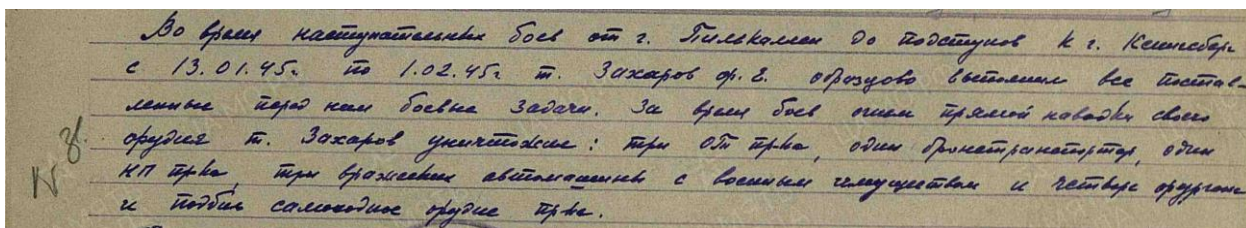 Во время наступательных боев от г. Пилькаллен до подступов к г. Кенигсберг
с 13.01.45г. по 1.02.45г. т. Захаров ф. Е. образцово выполнил все постав-
ленные перед ним боевые задачи. За время боев огнем прямой наводки своего
орудия т. Захаров уничтожил: три ОТ пр-ка, один бронетранспортер, один
НП пр-ка, три вражеских автомашины с военным имуществом и четыре фургона
и подбил самоходное орудие пр-ка.